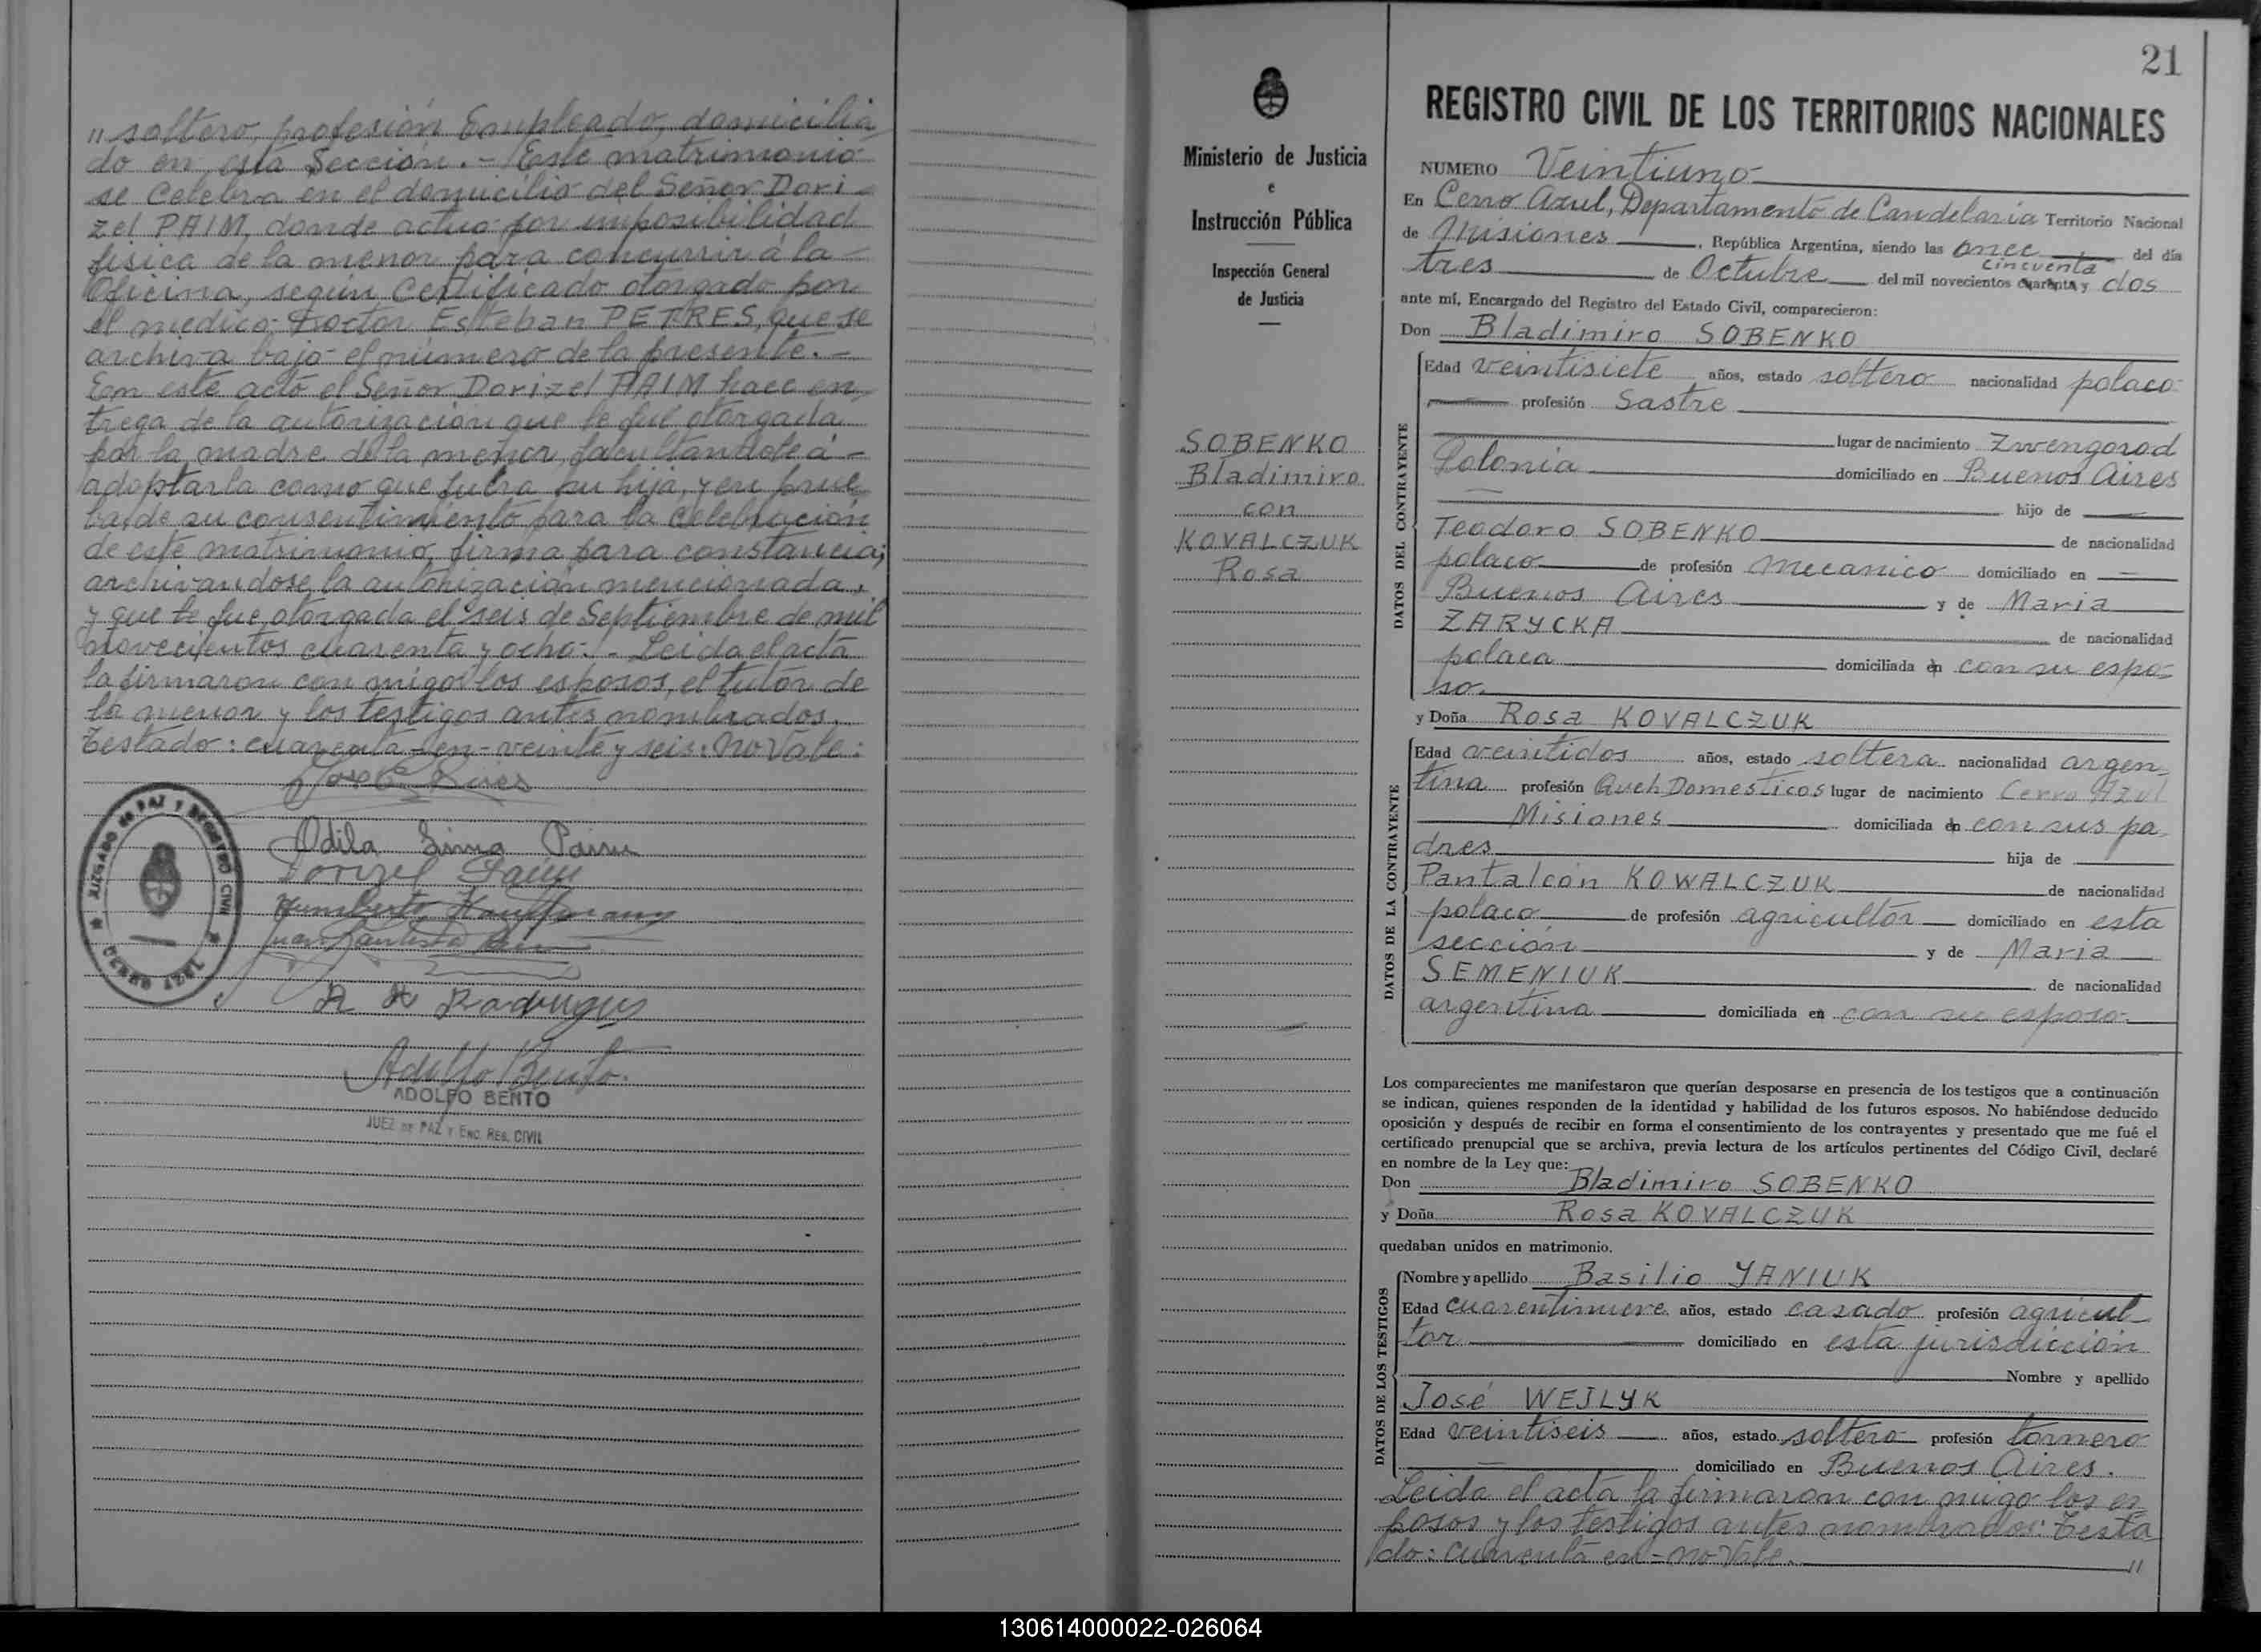 " soltero, profesión Empleado, domicilia
do en esta Sección.- Este matrimonio
se celebra en el domicilio del Señor Dori-
zel PAIM, donde actuo por imposibilidad
fisica de la menor para concurrir á la-
Oficina, segun Certificado otorgado por
el medico Doctor Esteban PETRES, que se
archiva bajo el número de la presente.-
En este acto el Señor Dorizel PAIM hace en
trega de la autorización que le fué otorgada
por la madre de la menor, facultandole á-
adoptarla como que fuera su hija, y en prue
ba de su consentimiento para la celebración
de este matrimonio, firma para constancia;
archivandose la autorización mencionada,
y que le fue otorgada el seis de Septiembre de mil
novecientos cuarenta y ocho.- Leida el acta
la firmaron con migo los esposos, el tutor de
la menor y los testigos antes nombrados.
Testado: cuarenta-en-veinte y seis: No Vale:
Odila Lima Paim
Dorizel Paim
Humberto Kauffmann
Juan Bautista
R H Rodrigues
Adolfo Bento.
ADOLFO BENTO
JUEZ DE PAZ Y ENC. REG. CIVIL
JUZGADO DE PAZ Y REGISTRO CIVIL
CERRO AZUL
Ministerio de Justicia
e
Instrucción Pública
Inspección General
de Justicia
SOBENKO
Bladimiro
con
KOVALCZUK
Rosa
21
REGISTRO CIVIL DE LOS TERRITORIOS NACIONALES
NUMERO Veintiuno
En Cerro Azul, Departamento de Candelaria Territorio Nacional
de Misiones, República Argentina, siendo las once del día
cincuenta
tres de Octubre del mil novecientos cuarenta y dos
ante mí, Encargado del Registro del Estado Civil, comparecieron:
Don Bladimiro SOBENKO
DATOS DEL CONTRAYENTE
Edad veintisiete años, estado soltero nacionalidad polaco
profesión Sastre
lugar de nacimiento Zwengorod
Polonia domiciliado en Buenos Aires
hijo de
Teodoro SOBENKO de nacionalidad
polaco de profesión mecanico domiciliado en
Buenos Aires y de Maria
ZARYCKA de nacionalidad
polaca domiciliada en con su espo-
so.
y Doña Rosa KOVALCZUK
DATOS DE LA CONTRAYENTE
Edad veintidos años, estado soltera nacionalidad argen-
tina profesión Queh Domesticos lugar de nacimiento Cerro Azul
Misiones domiciliada en con sus pa
dres hija de
Pantaleón KOWALCZUK de nacionalidad
polaco de profesión agricultor domiciliado en esta
sección y de Maria
SEMENIUK de nacionalidad
argentina domiciliada en con su esposo
Los comparecientes me manifestaron que querían desposarse en presencia de los testigos que a continuación
se indican, quienes responden de la identidad y habilidad de los futuros esposos. No habiéndose deducido
oposición y después de recibir en forma el consentimiento de los contrayentes y presentado que me fué el
certificado prenupcial que se archiva, previa lectura de los artículos pertinentes del Código Civil, declaré
en nombre de la Ley que:
Don Bladimiro SOBENKO
y Doña Rosa KOVALCZUK
quedaban unidos en matrimonio.
DATOS DE LOS TESTIGOS
Nombre y apellido Basilio YANIUK
Edad cuarentinueve años, estado casado profesión agricul-
tor domiciliado en esta jurisdicción
Nombre y apellido
José WEJLYK
Edad veintiseis años, estado soltero profesión tornero
domiciliado en Buenos Aires.
Leida el acta la firmaron con migo los es
posos y los testigos antes nombrados: Testa
do: cuarenta en-no Vale. "
130614000022-026064